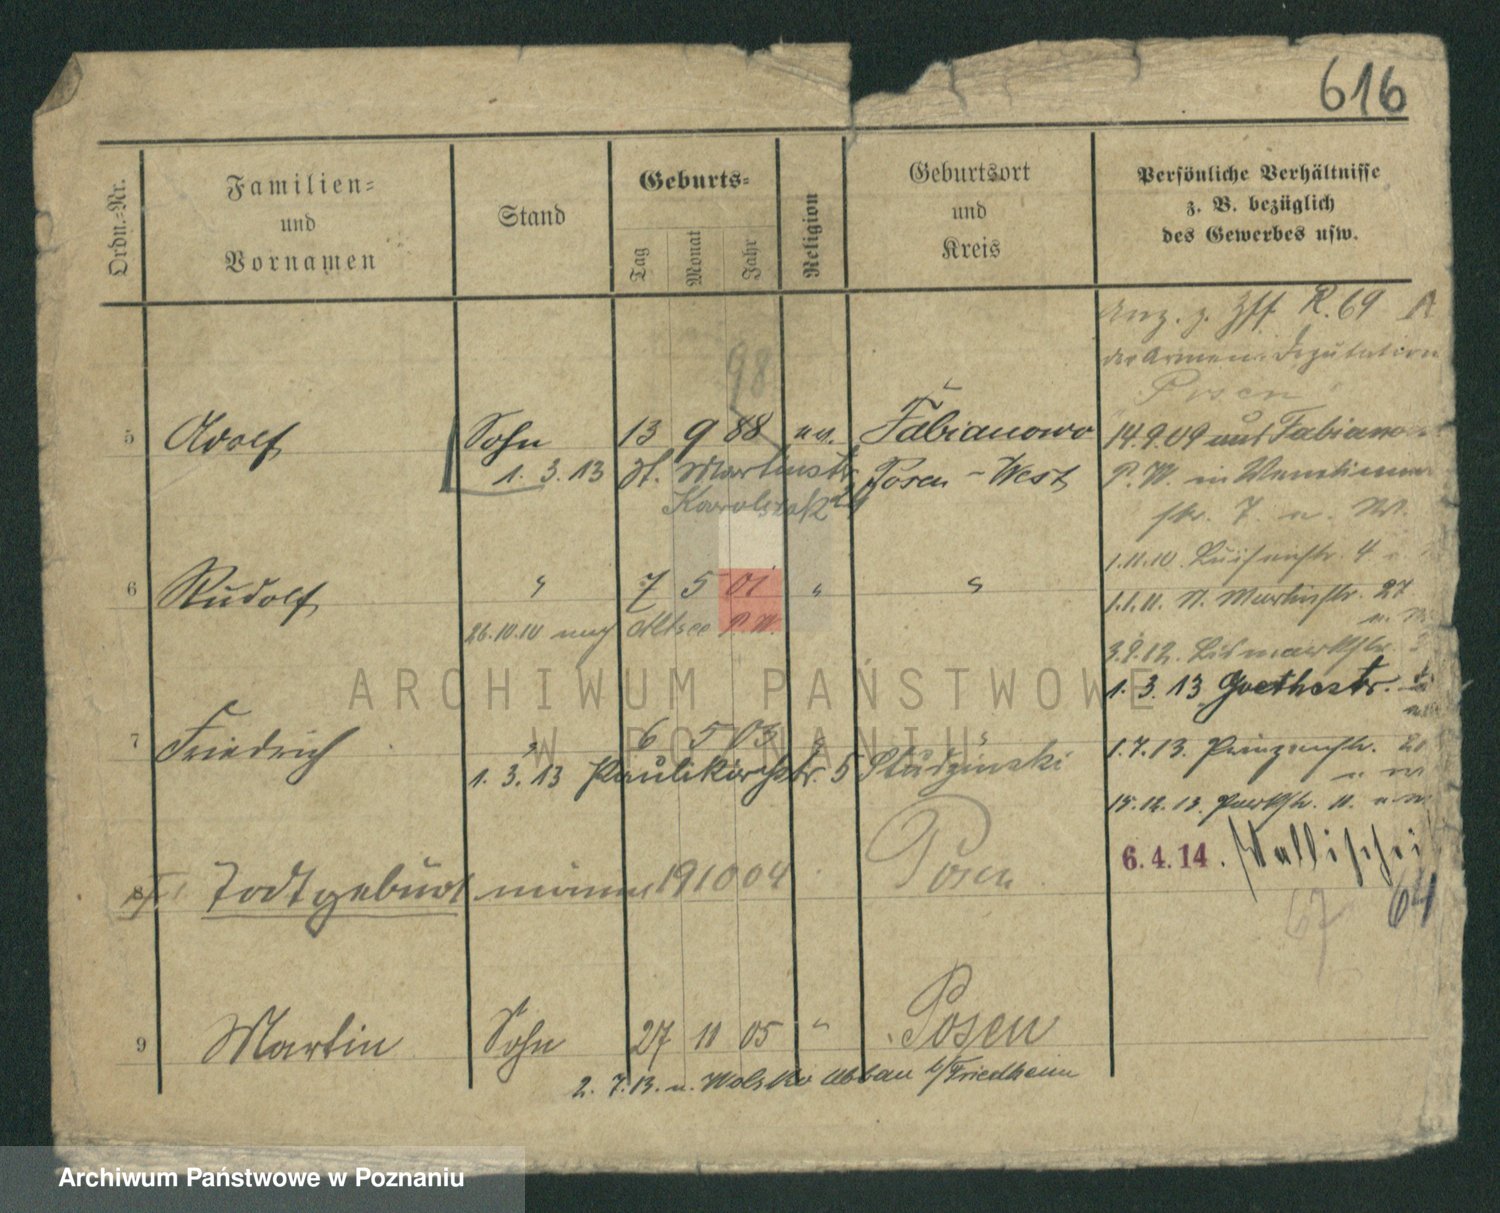 616
Ordn.-Nr.
Familien-
und
Vornamen
Stand
Geburts-
Tag
Monat
Jahr
Religion
Geburtsort
und
Kreis
Persönliche Verhältnisse
z. B. bezüglich
des Gewerbes usw.
R. 69
der Armen-Deputation
Posen
98
5 Adolf Sohn 13 9 88 ev. Fabianowo
14.9.09 aus Fabianowo
1. 3. 13 St. Martinstr. Posen - West
P. W. in
Karolczak
str. 7
1.11.10. Luisenstr. 4
6 Rudolf " 7 5 01 " "
1.1.11. St. Martinstr. 27
26.10.10 nach Altsee P. W.
3.9.12. Bismarckstr.
1. 3. 13 Goethestr.
7 Friedrich " 6 5 03 " "
1.7.13. Prinzenstr.
1. 3. 13 Paulikirchstr. 5 Studzinski
15.12.13. Parkstr. 11.
6.4.14. Wallischei
64
67
8 Todtgeburt männl 19 10 04 Posen
9 Martin Sohn 27 11 05 " Posen
2. 7. 13. n. Wolsko Abbau b/Friedheim
ARCHIWUM PAŃSTWOWE
W POZNANIU
Archiwum Państwowe w Poznaniu